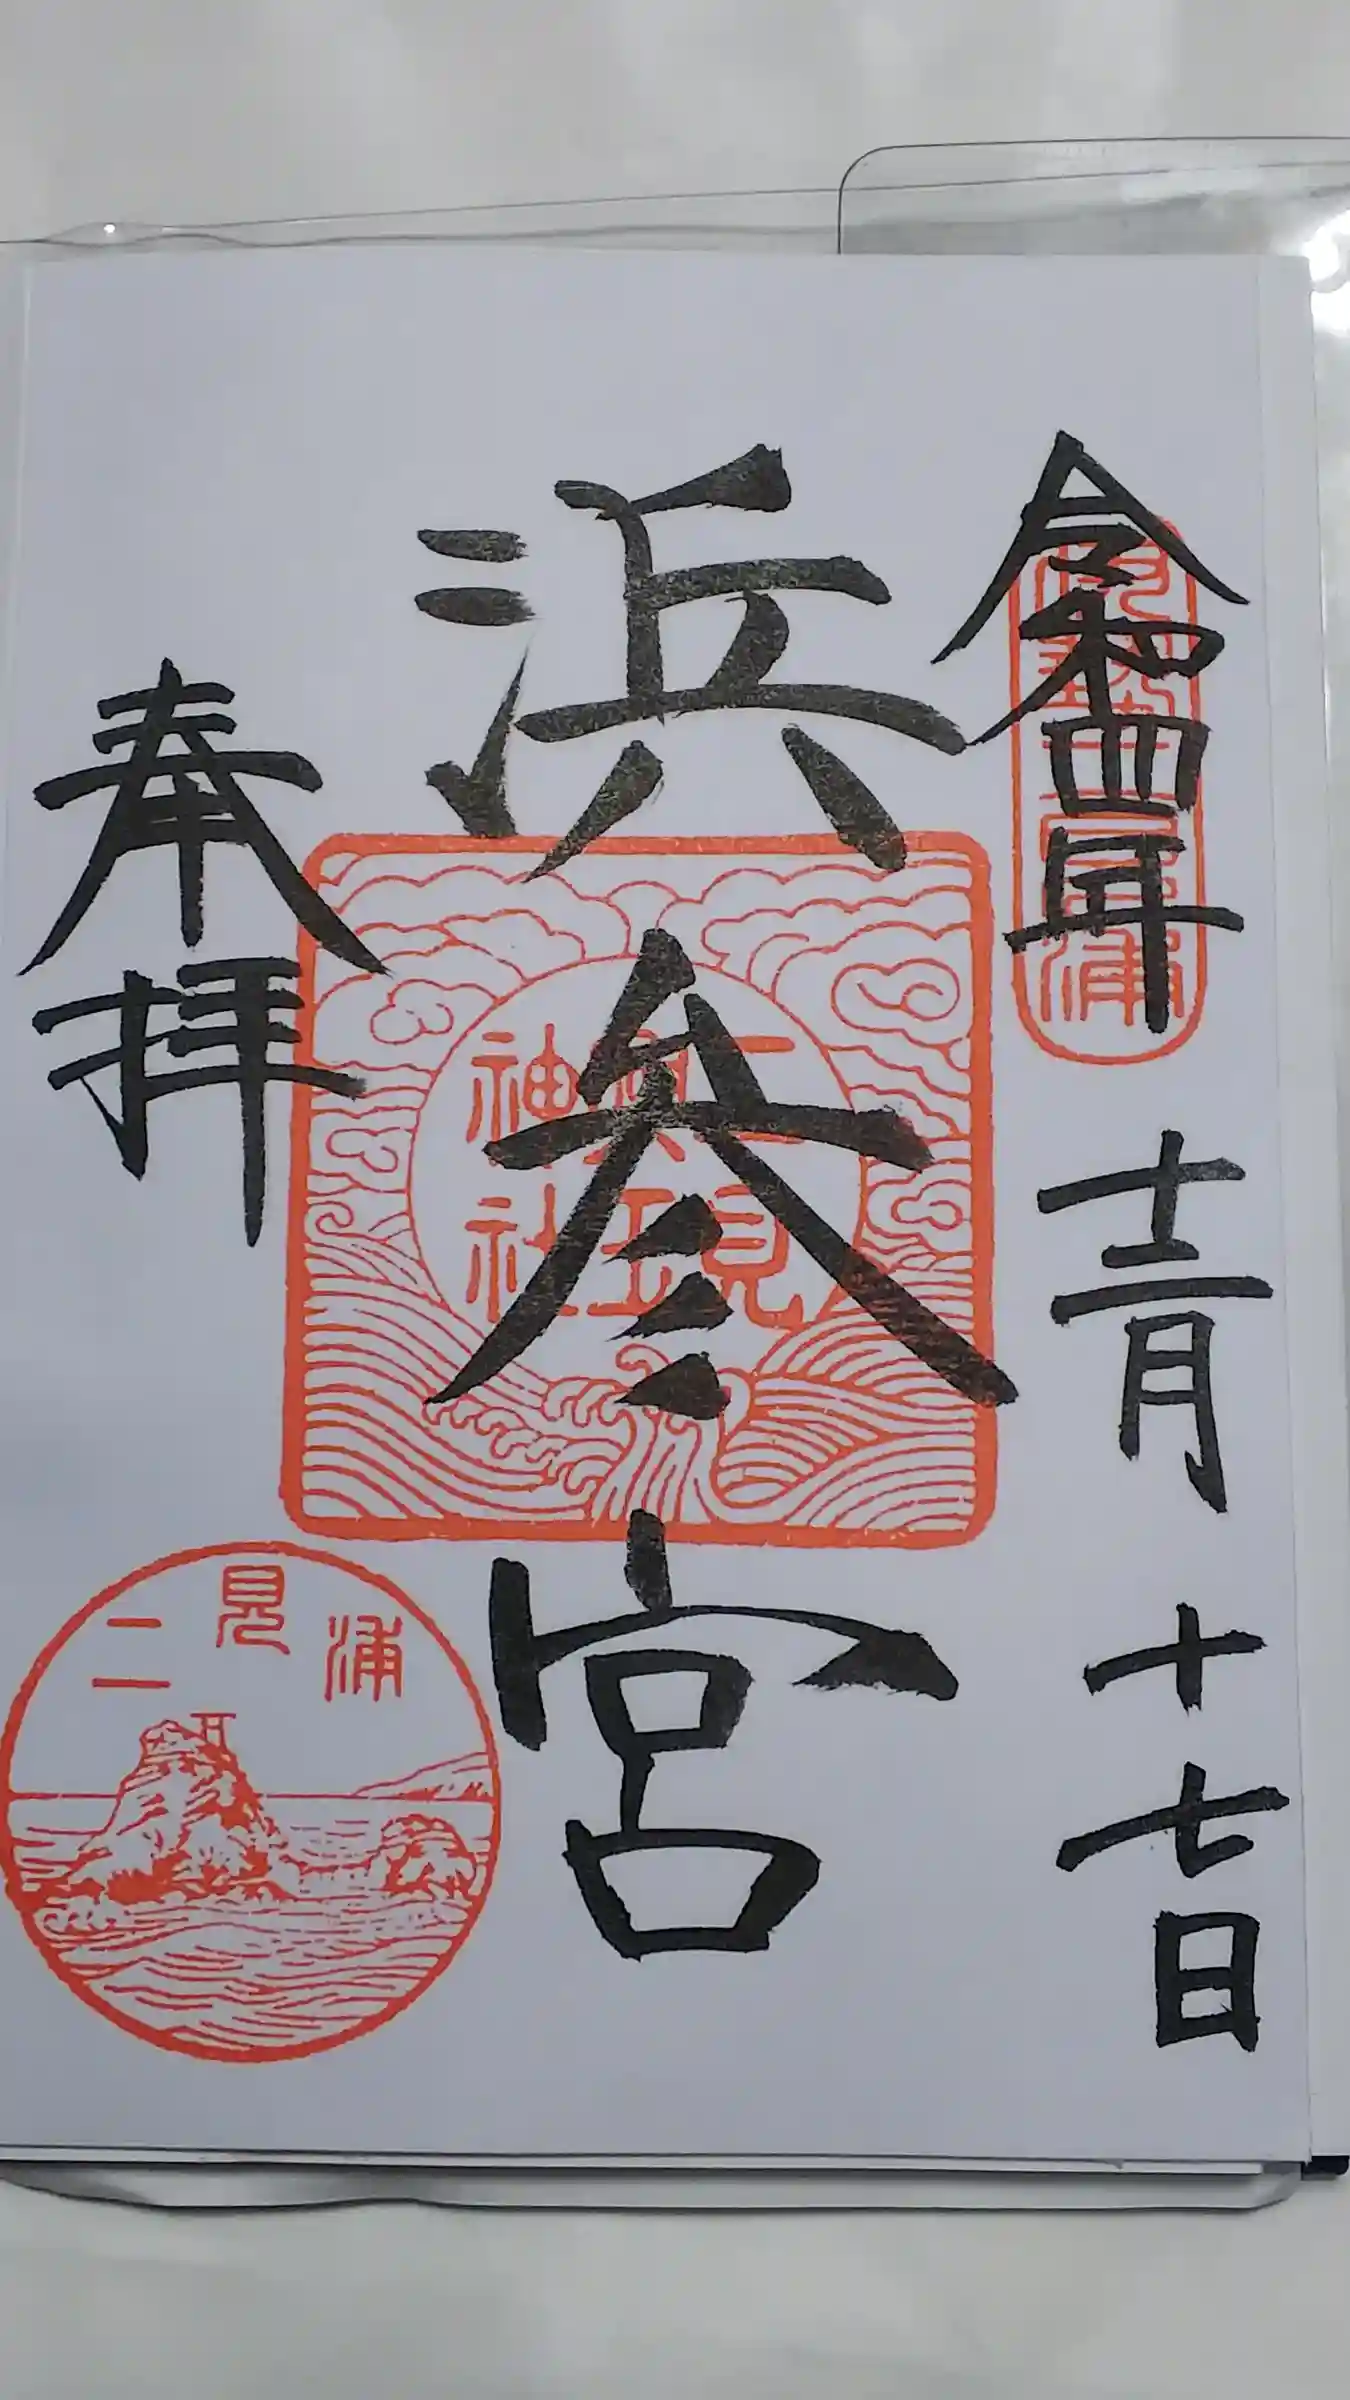 令和四年 十二月 十七日
伊勢二見浦
浜参宮
二見
興玉
神社
奉拝
二見浦